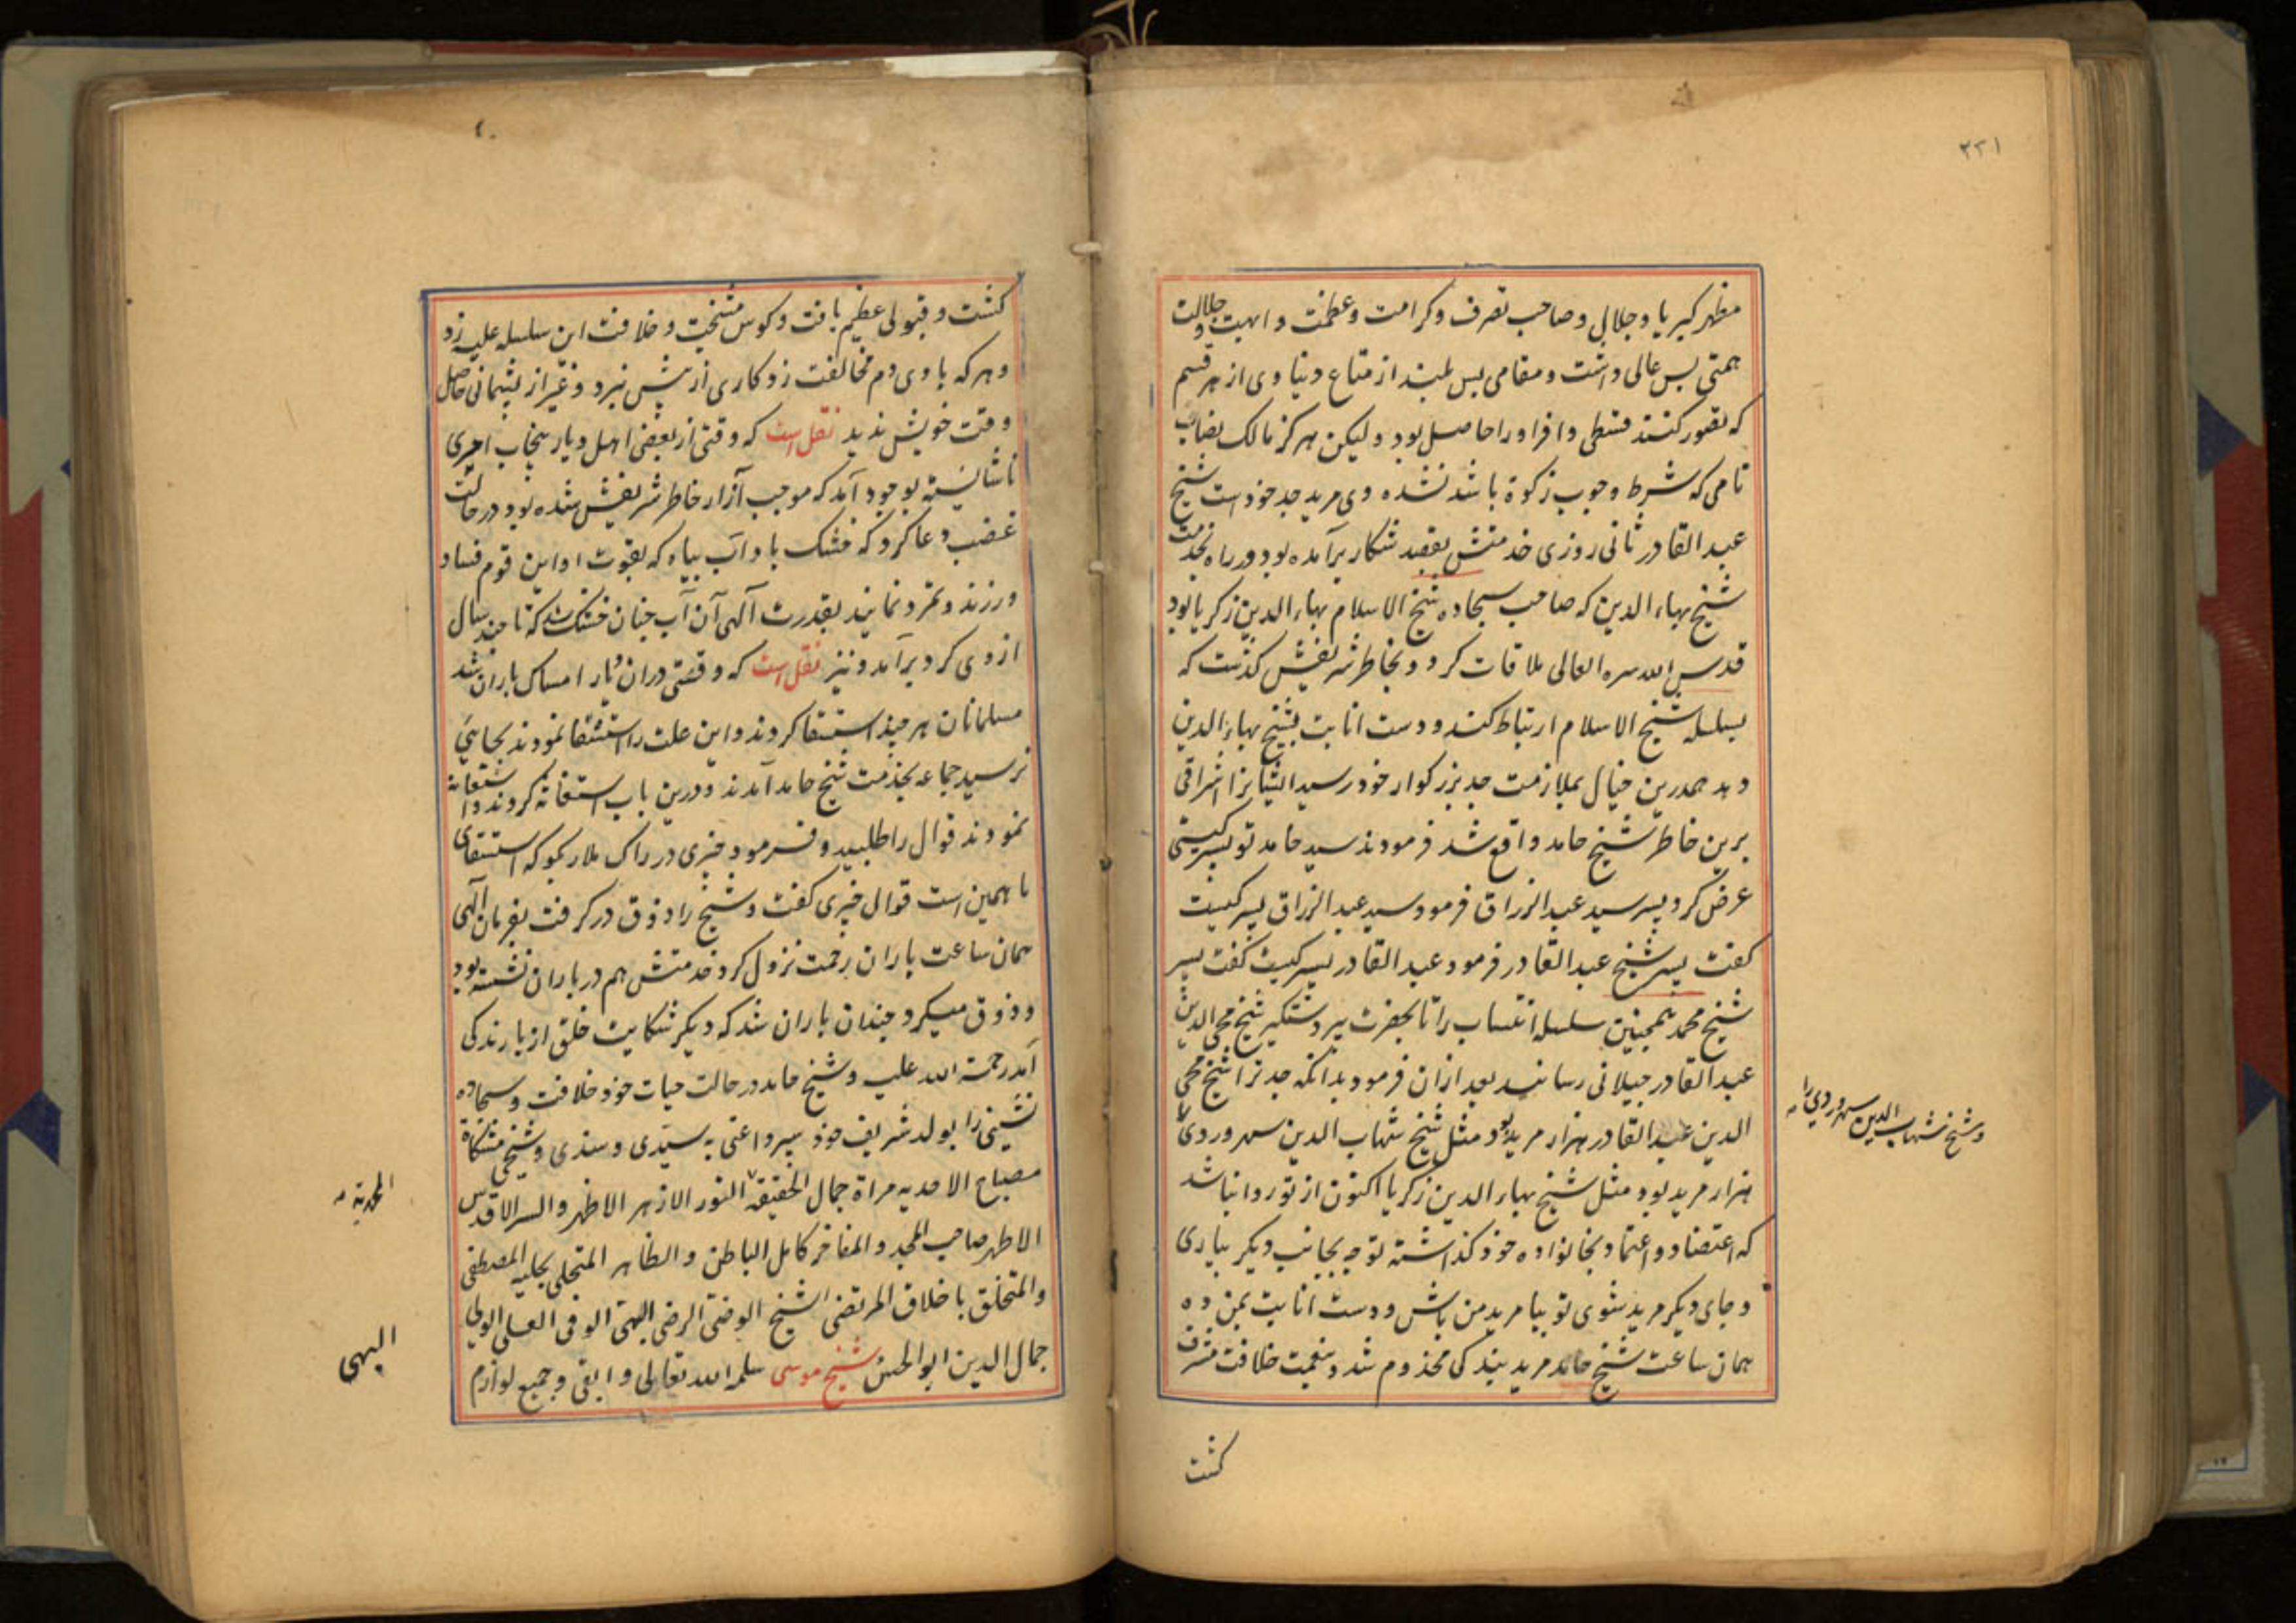 ۲۲۱
مظهر کبریا و جلال و صاحب تصرف و کرامت و عظمت و ابهت و جلالت
همتی بس عالی داشت و مقامی بس بلند از متاع دنیاوی از هر قسم
که تصور کنند قسطی وافر او را حاصل بود و لیکن هرگز مالک نصاب
نامی که شرط وجوب زکوة باشد نشده وی مرید جد خود است شیخ
عبد القادر ثانی روزی خدمتش بقصد شکار برآمده بود در راه بخدمت
شیخ بهاء الدین که صاحب سجاده شیخ الاسلام بهاء الدین زکریا بود
قدس الله سره العالی ملاقات کرد و بخاطر شریفش گذشت که
بسلسله شیخ الاسلام ارتباط کند و دست انابت بشیخ بهاء الدین
دهد همدرین خیال بملازمت جد بزرگوار خود رسید ایشانرا اشراقی
برین خاطر شیخ حامد واقع شد فرمودند سید حامد تو پسر کیستی
عرض کرد پسر سید عبد الرزاق فرمود سید عبد الرزاق پسر کیست
گفت پسر شیخ عبد القادر فرمود عبد القادر پسر کیست گفت پسر
شیخ محمد همچنین سلسله انتساب را تا بحضرت پیر دستگیر شیخ محی الدین
عبد القادر جیلانی رسانید بعد ازان فرمود بدانکه جد ترا شیخ محی
الدین عبد القادر هزار مرید بود مثل شیخ شهاب الدین سهروردی
و شیخ شهاب الدین سهروردی را
هزار مرید بود مثل شیخ بهاء الدین زکریا اکنون از تو روا نباشد
که اعتضاد و اعتماد بخانواده خود گذاشته توجه بجانب دیگر بیاری
و جای دیگر مرید شوی تو بیا مرید من باش و دست انابت بمن ده
همان ساعت شیخ حامد مرید بندگی مخدوم شد و بنعمت خلافت مشرف
گشت
گشت و قبولی عظیم یافت و کوس مشیخت و خلافت این سلسله علیه زد
و هر که با وی دم مخالفت زد کاری از پیش نبرد و غیر از پشیمانی حاصل
وقت خویش ندید نقل است که وقتی از بعضی اهل دیار بجناب امری
ناشایسته بوجود آمد که موجب آزار خاطر شریفش شده بود در حالت
غضب دعا کرد که خشک باد آب بیاه که بقوت او این قوم فساد
ورزند و تمرد نمایند بقدرت آلهی آن آب چنان خشک شد که تا چند سال
از وی گرد برآمد و نیز نقل است که وقتی دران دیار امساک باران شد
مسلمانان هر چند استسقا کردند و این علت را استشفا نمودند بجایی
نرسید جماعه بخدمت شیخ حامد آمدند و درین باب استغاثه کردند و استعانه
نمودند قوال را طلبید و فرمود چیزی در راگ ملار بگو که استسقای
ما همین است قوال چیزی گفت و شیخ را ذوق درگرفت بفرمان الهی
همان ساعت باران رحمت نزول کرد خدمتش هم در باران نشسته بود
و ذوق میکرد چندان باران شد که دیگر شکایت خلق از بارندگی
آمد رحمة الله علیه و شیخ حامد در حالت حیات خود خلافت و سجاده
نشینی را بولد شریف خود سپرد اعنی به سیدی و سندی و شیخی مشکاة
مصباح الاحدیه مراة جمال الحقیقة النور الازهر الاظهر والسر الاقدس
المحمدیه
الاطهر صاحب المجد و المفاخر کامل الباطن و الظاهر المتحلی بحلیه المصطفی
والمتخلق باخلاق المرتضی الشیخ الوضی الرضی البهی الوفی العلی الولی
البهی
جمال الدین ابو الحسن شیخ موسی سلمه الله تعالی و ابقی و جمیع لوازم